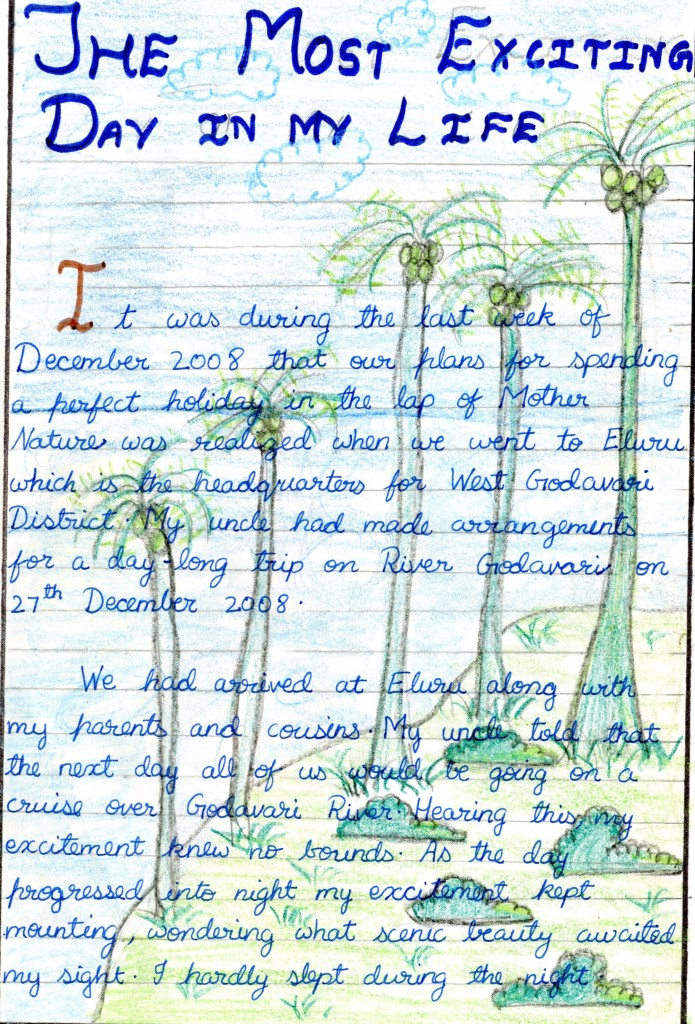 THE MOST EXCITING
DAY IN MY LIFE
It was during the last week of
December 2008 that our plans for spending
a perfect holiday in the lap of Mother
Nature was realized when we went to Eluru
which is the headquarters for West Godavari
District. My uncle had made arrangements
for a day-long trip on River Godavari on
27th December 2008.
We had arrived at Eluru along with
my parents and cousins. My uncle told that
the next day all of us would be going on a
cruise over Godavari River. Hearing this, my
excitement knew no bounds. As the day
progressed into night my excitement kept
mounting, wondering what scenic beauty awaited
my sight. I hardly slept during the night